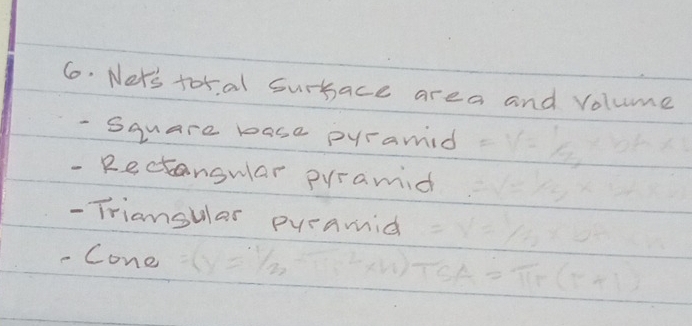 6. Net's total surface area and volume
- Square base pyramid = V = 1/3 × bh ×
- Rectangular pyramid = V = 1/3 ×
- Triangular pyramid = V = 1/3 × bh × h
- Cone = (V = 1/3 πr² × h) TSA = πr (r + l)